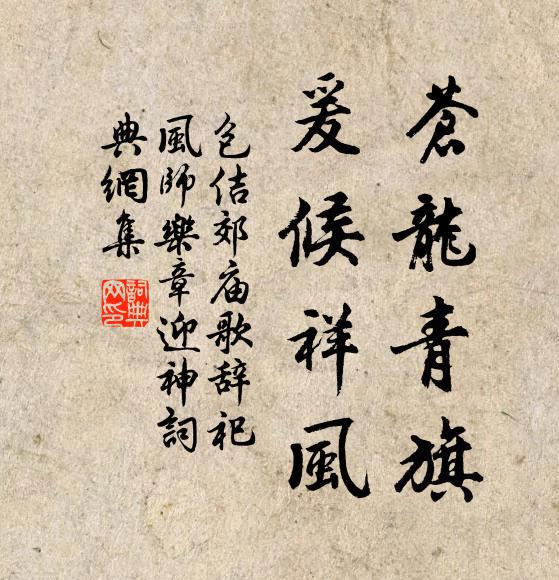 蒼龍青旗
爰候祥風
包佶郊庙歌辞祀
風師樂章迎神詞
典網集
詞典
网印